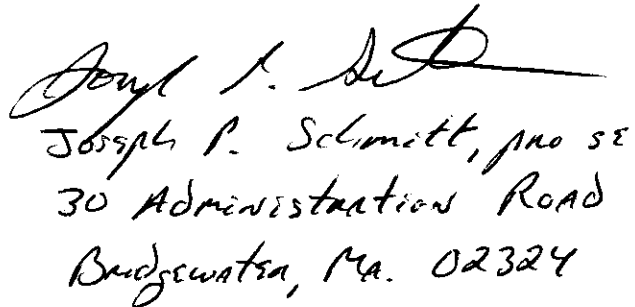 Joseph P. Schmitt, pro se
30 Administration Road
Bridgewater, Ma. 02324